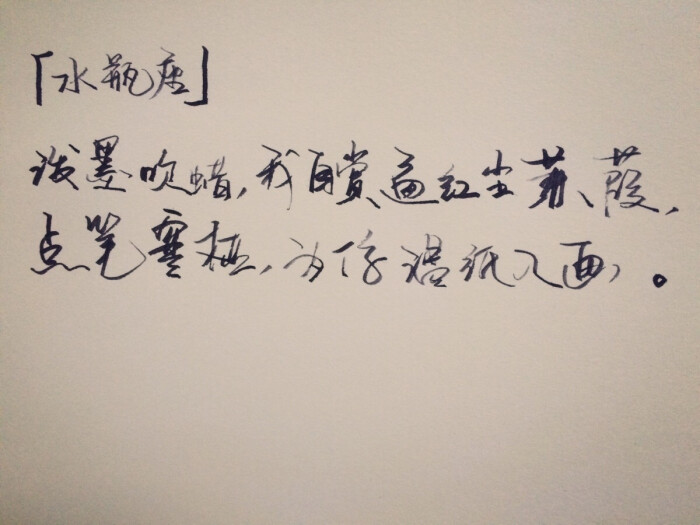 「水瓶座」
泼墨吹蜡,我自赏遍红尘蒹葭,
点笔寒梅,为你温纸入画。